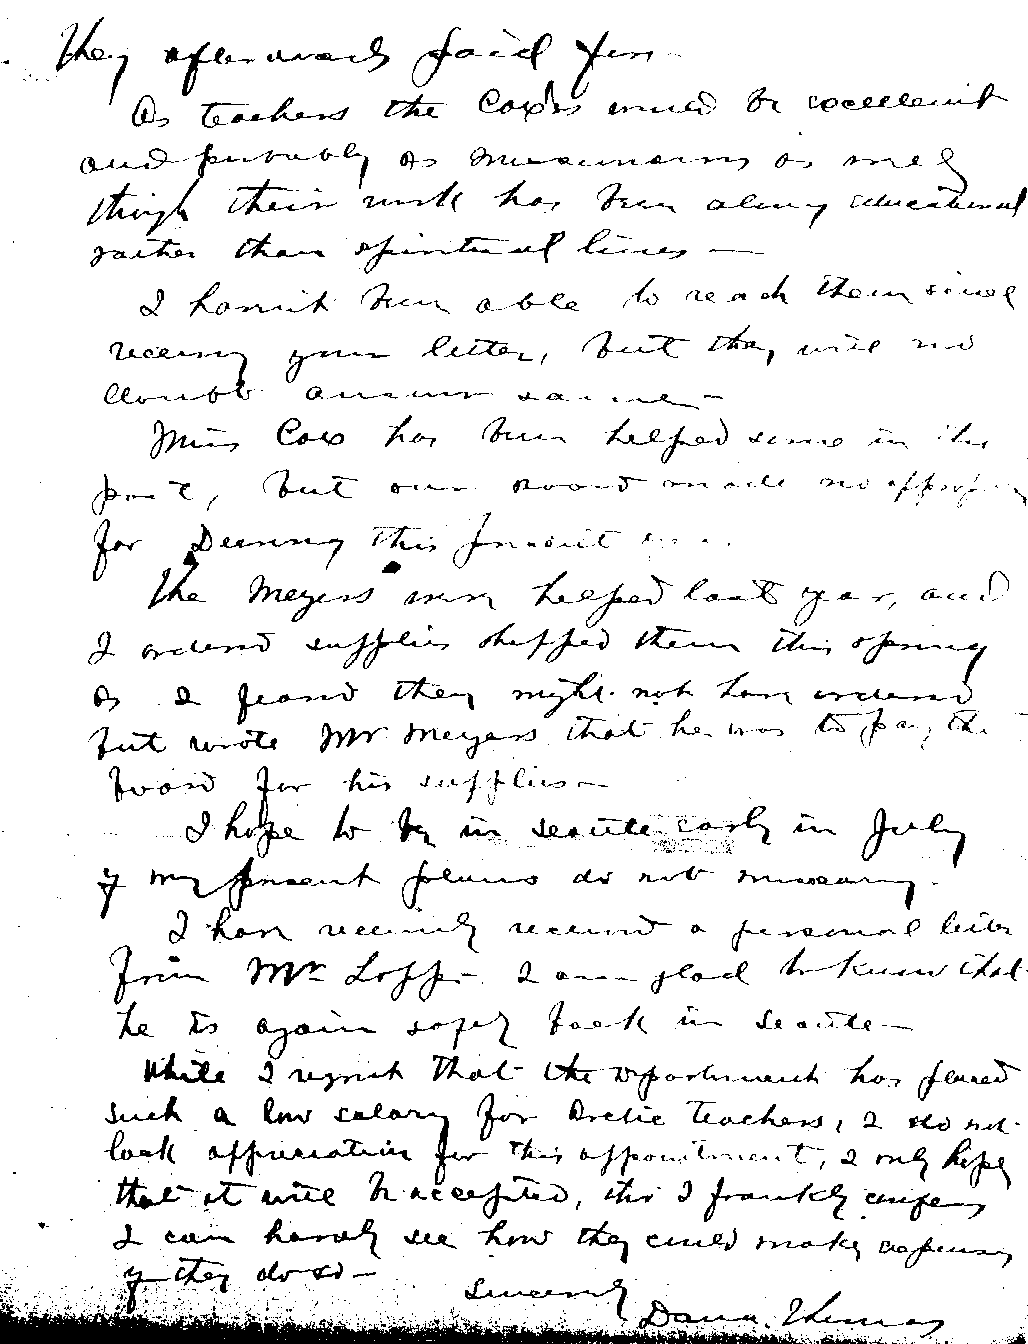 They afterwards paid for -
As teachers the Cox's would be excellent
and probably as missionaries as well
though their work has been along educational
rather than spiritual lines -
I havn't been able to reach them since
receiving your letter, but they will no
doubt answer same -
Miss Cox has been helped some in the
past, but our board made no
for Deering this present
The Meyers were helped last year, and
I ordered supplies shipped them this spring
as I feared they might not have ordered
but wrote Mr Meyers that he was to pay the
board for his supplies -
I hope to be in Seattle early in July
if my present plans do not miscarry.
I have recently received a personal letter
from Mr Lopp - I am glad to know that
he is again safely back in Seattle -
While I regret that the department has placed
such a low salary for Arctic teachers, I do not
lack appreciation for this appointment, I only hope
that it will be accepted, tho I frankly confess
I can hardly see how they could make expenses
if they do so -
Sincerely
Dana Thomas